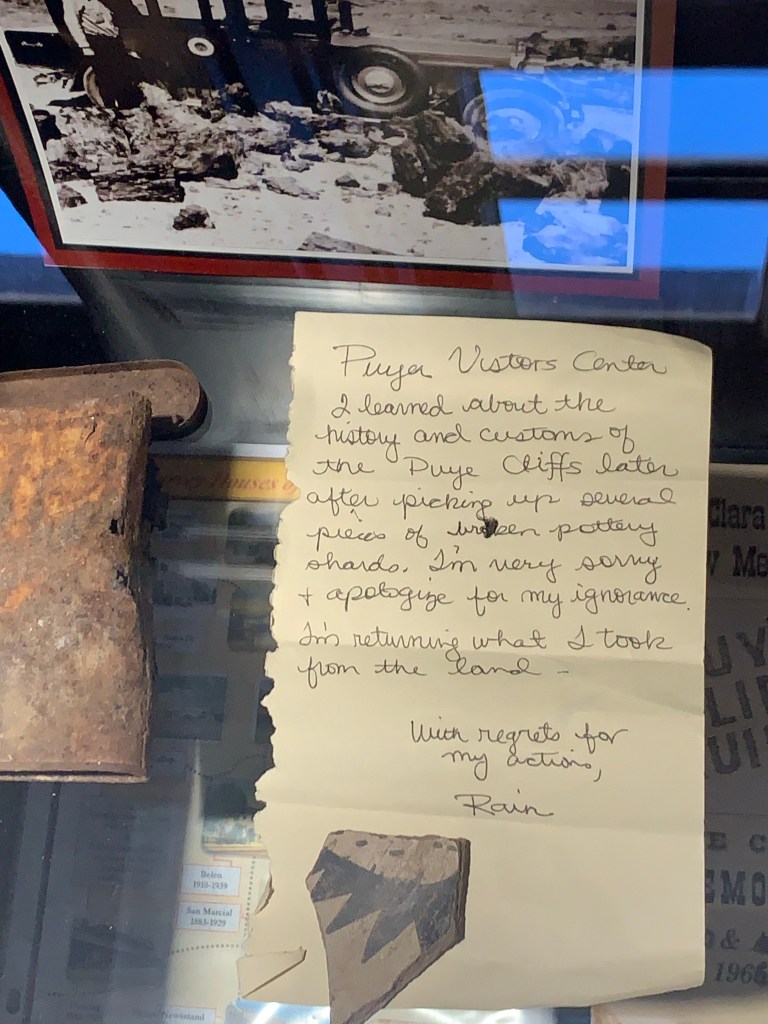 Puye Vistors Center
I learned about the
history and customs of
the Puye Cliffs later
after picking up several
pieces of broken pottery
shards. I'm very sorry
+ apologize for my ignorance.
I'm returning what I took
from the land -
With regrets for
my actions,
Rain
Houses of
Belen
1910-1939
San Marcial
1883-1929
Newsstand
Clara
1965